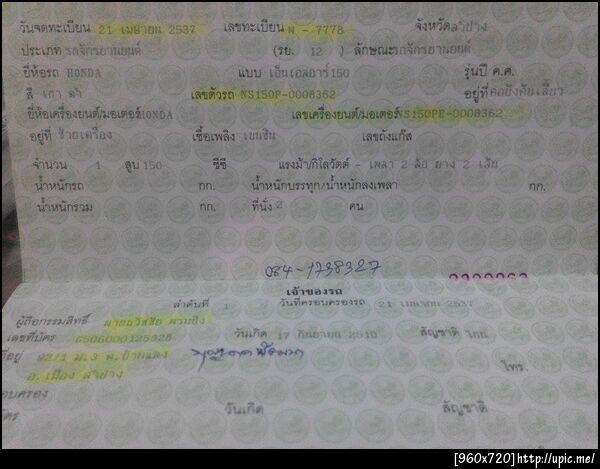 วันจดทะเบียน 21 เมษายน 2537 เลขทะเบียน น - 7778 จังหวัด ลำปาง
ประเภท รถจักรยานยนต์ (รย. 12 ) ลักษณะ รถจักรยานยนต์
ยี่ห้อรถ HONDA แบบ เอ็นเอสอาร์ 150 รุ่นปี ค.ศ.
สี เทา ดำ เลขตัวรถ NS150P-0008362 อยู่ที่ คอบังคับเลี้ยว
ยี่ห้อเครื่องยนต์/มอเตอร์ HONDA เลขเครื่องยนต์/มอเตอร์ NS150PE-0008362
อยู่ที่ ซ้ายเครื่อง เชื้อเพลิง เบนซิน เลขถังแก๊ส
จำนวน 1 สูบ 150 ซีซี แรงม้า/กิโลวัตต์ - เพลา 2 ล้อ ยาง 2 เส้น
น้ำหนักรถ กก. น้ำหนักบรรทุก/น้ำหนักลงเพลา กก.
น้ำหนักรวม กก. ที่นั่ง 2 คน
084-1738327
เจ้าของรถ
ลำดับที่ 1 วันที่ครอบครองรถ 21 เมษายน 2537
ผู้ถือกรรมสิทธิ์ นาย
เลขที่บัตร G506000125928 วันเกิด 17 กันยายน 2510 สัญชาติ ไทย
ที่อยู่ 92/1 ม.3 ต.บ้านแลง โทร.
อ.เมือง ลำปาง
อบครอง
ัตร วันเกิด สัญชาติ
[960x720]http://upic.me/